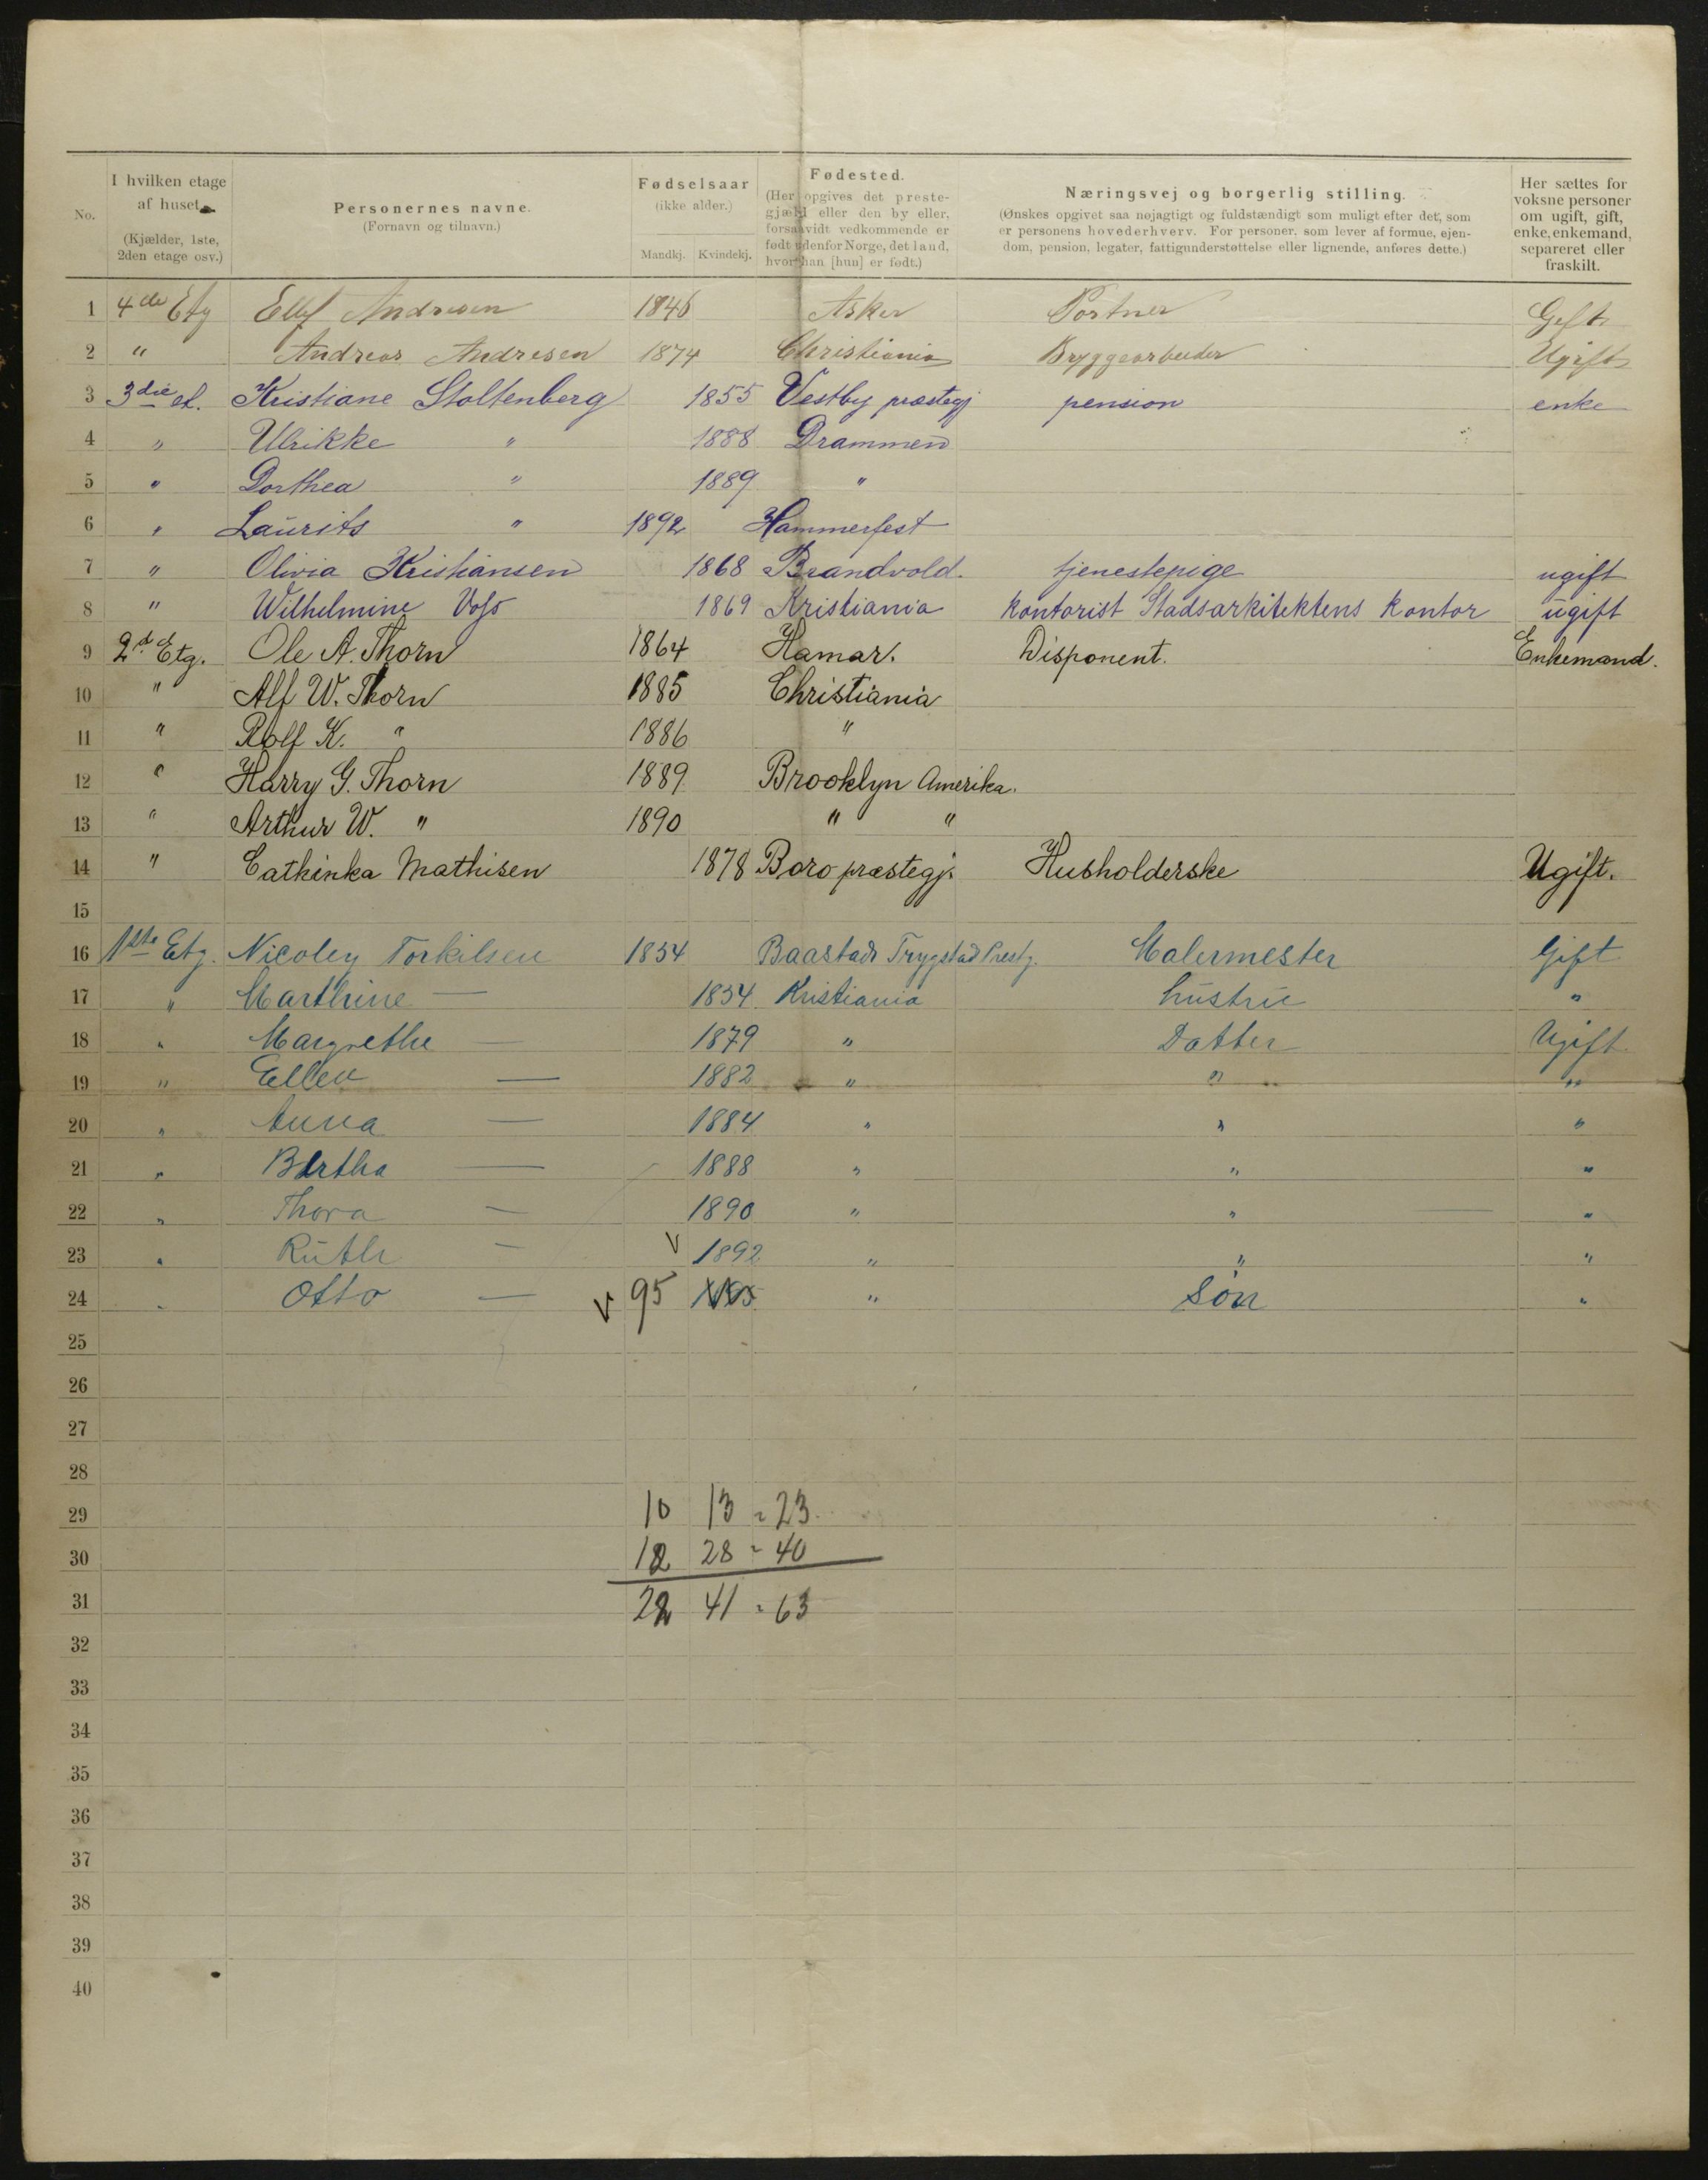 No.
I hvilken etage af huset.
(Kjælder, 1ste, 2den etage osv.)
Personernes navne.
(Fornavn og tilnavn.)
Fødselsaar
(ikke alder.)
Mandkj. Kvindekj.
Fødested.
(Her opgives det prestegjæld eller den by eller, forsaavidt vedkommende er født udenfor Norge, det land, hvor han [hun] er født.)
Næringsvej og borgerlig stilling.
(Ønskes opgivet saa nøjagtigt og fuldstændigt som muligt efter det, som er personens hovederhverv. For personer, som lever af formue, ejendom, pension, legater, fattigunderstøttelse eller lignende, anføres dette.)
Her sættes for voksne personer om ugift, gift, enke, enkemand, separeret eller fraskilt.
1 4de Etg Ellef Andresen 1846 Asker Portner Gift
2 " Andreas Andresen 1874 Christiania Bryggearbeider Ugift
3 3die et. Kristiane Stoltenberg 1855 Vestby præstegj pension enke
4 " Ulrikke " 1888 Drammen
5 " Dorthea " 1889 "
6 " Laurits " 1892 Hammerfest
7 " Olivia Kristiansen 1868 Brandvold. tjenestepige ugift
8 " Wilhelmine Voss 1869 Kristiania kontorist Stadsarkitektens kontor ugift
9 2d Etg. Ole A. Thorn 1864 Hamar. Disponent. Enkemand.
10 " Alf W. Thorn 1885 Christiania
11 " Rolf K. " 1886 "
12 " Harry G. Thorn 1889 Brooklyn Amerika.
13 " Arthur W. " 1890 " "
14 " Cathinka Mathisen 1878 Boro præstegj. Husholderske Ugift.
15
16 1ste Etg. Nicoley Torkilsen 1854 Baastad Trygstad Prestg. Malermester Gift
17 " Marthine — 1854 Kristiania hustru "
18 " Margrethe — 1879 " Datter Ugift
19 " Ellen — 1882 " " "
20 " Anna — 1884 " " "
21 " Bertha — 1888 " " "
22 " Thora — 1890 " " "
23 " Ruth — v 1892 " " "
24 " Otto — v 95 " Søn "
25
26
27
28
29 10 13 = 23
30 12 28 = 40
31 22 41 = 63
32
33
34
35
36
37
38
39
40